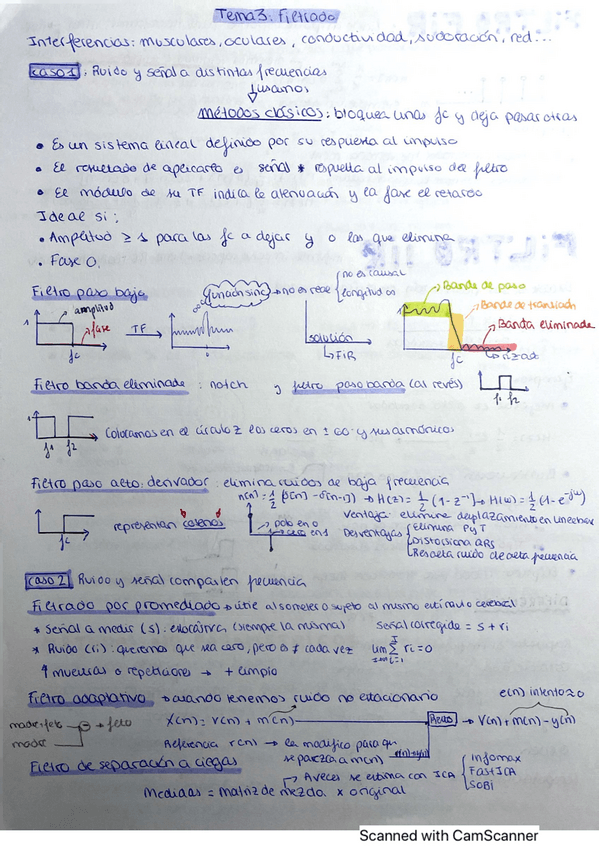 Tema 3: Filtrado
Interferencias: musculares, oculares, conductividad, sudoración, red...
caso 1: Ruido y señal a distintas frecuencias
↓ usamos
métodos clásicos: bloquea unas fc y deja pasar otras
• Es un sistema lineal definido por su respuesta al impulso
• El resultado de aplicarlo es señal * respuesta al impulso del filtro
• El módulo de su TF indica la atenuación y la fase el retardo
Ideal si:
• Amplitud ≥ 1 para las fc a dejar y 0 las que elimina
• Fase 0.
Filtro paso bajo
amplitud
fase
1
fc
TF
0
función sinc → no es real
no es causal
longitud ∞
solución
↳ FIR
→ Banda de paso
→ Banda de transición
→ Banda eliminada
fc
→ rizado
Filtro banda eliminada: notch y filtro paso banda (al revés)
f1 f2
1
f1 f2
→ Colocamos en el círculo z los ceros en ± 60º y sus armónicos
Filtro paso alto: derivador: elimina ruidos de baja frecuencia
fc
representan
h(n) = 1/2 [δ(n) - δ(n-1)] → H(z) = 1/2 (1 - z⁻¹) → H(ω) = 1/2 (1 - e^-jω)
→ polo en 0
→ cero en 1
Ventaja: elimina desplazamiento en línea base
Desventajas
Elimina P y T
Distorsiona QRS
Resalta ruido de alta frecuencia
caso 2 Ruido y señal comparten frecuencia
Filtrado por promediado → útil al someter a sujeto al mismo estímulo cerebral
* Señal a medir (s): evocativa, (siempre la misma) Señal corregida = s + ri
* Ruido (ri): queremos que sea cero, pero es ≠ cada vez lim Σ ri = 0
↑ muestras o repeticiones → + limpio
Filtro adaptativo → cuando tenemos ruido no estacionario
e(n) intento ≈ 0
madre+feto
madre
→ feto
X(n) = v(n) + m(n)
→ v(n) + m(n) - y(n)
Referencia r(n) → la modifico para que
se parezca a m(n)
Filtro de separación a ciegas
→ A veces se estima con ICA
Infomax
FastICA
SOBI
Medidas = matriz de mezcla x original
Scanned with CamScanner